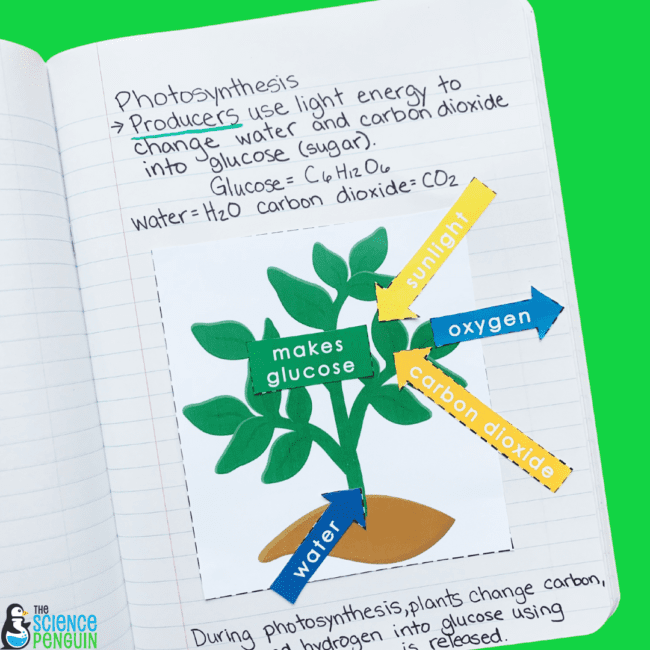 Photosynthesis
→ Producers use light energy to
change water and carbon dioxide
into glucose (sugar).
Glucose = C6H12O6
water = H2O carbon dioxide = CO2
sunlight
oxygen
makes
glucose
carbon dioxide
water
During photosynthesis, plants change carbon,
hydrogen into glucose using
is released.
THE
SCIENCE
PENGUIN